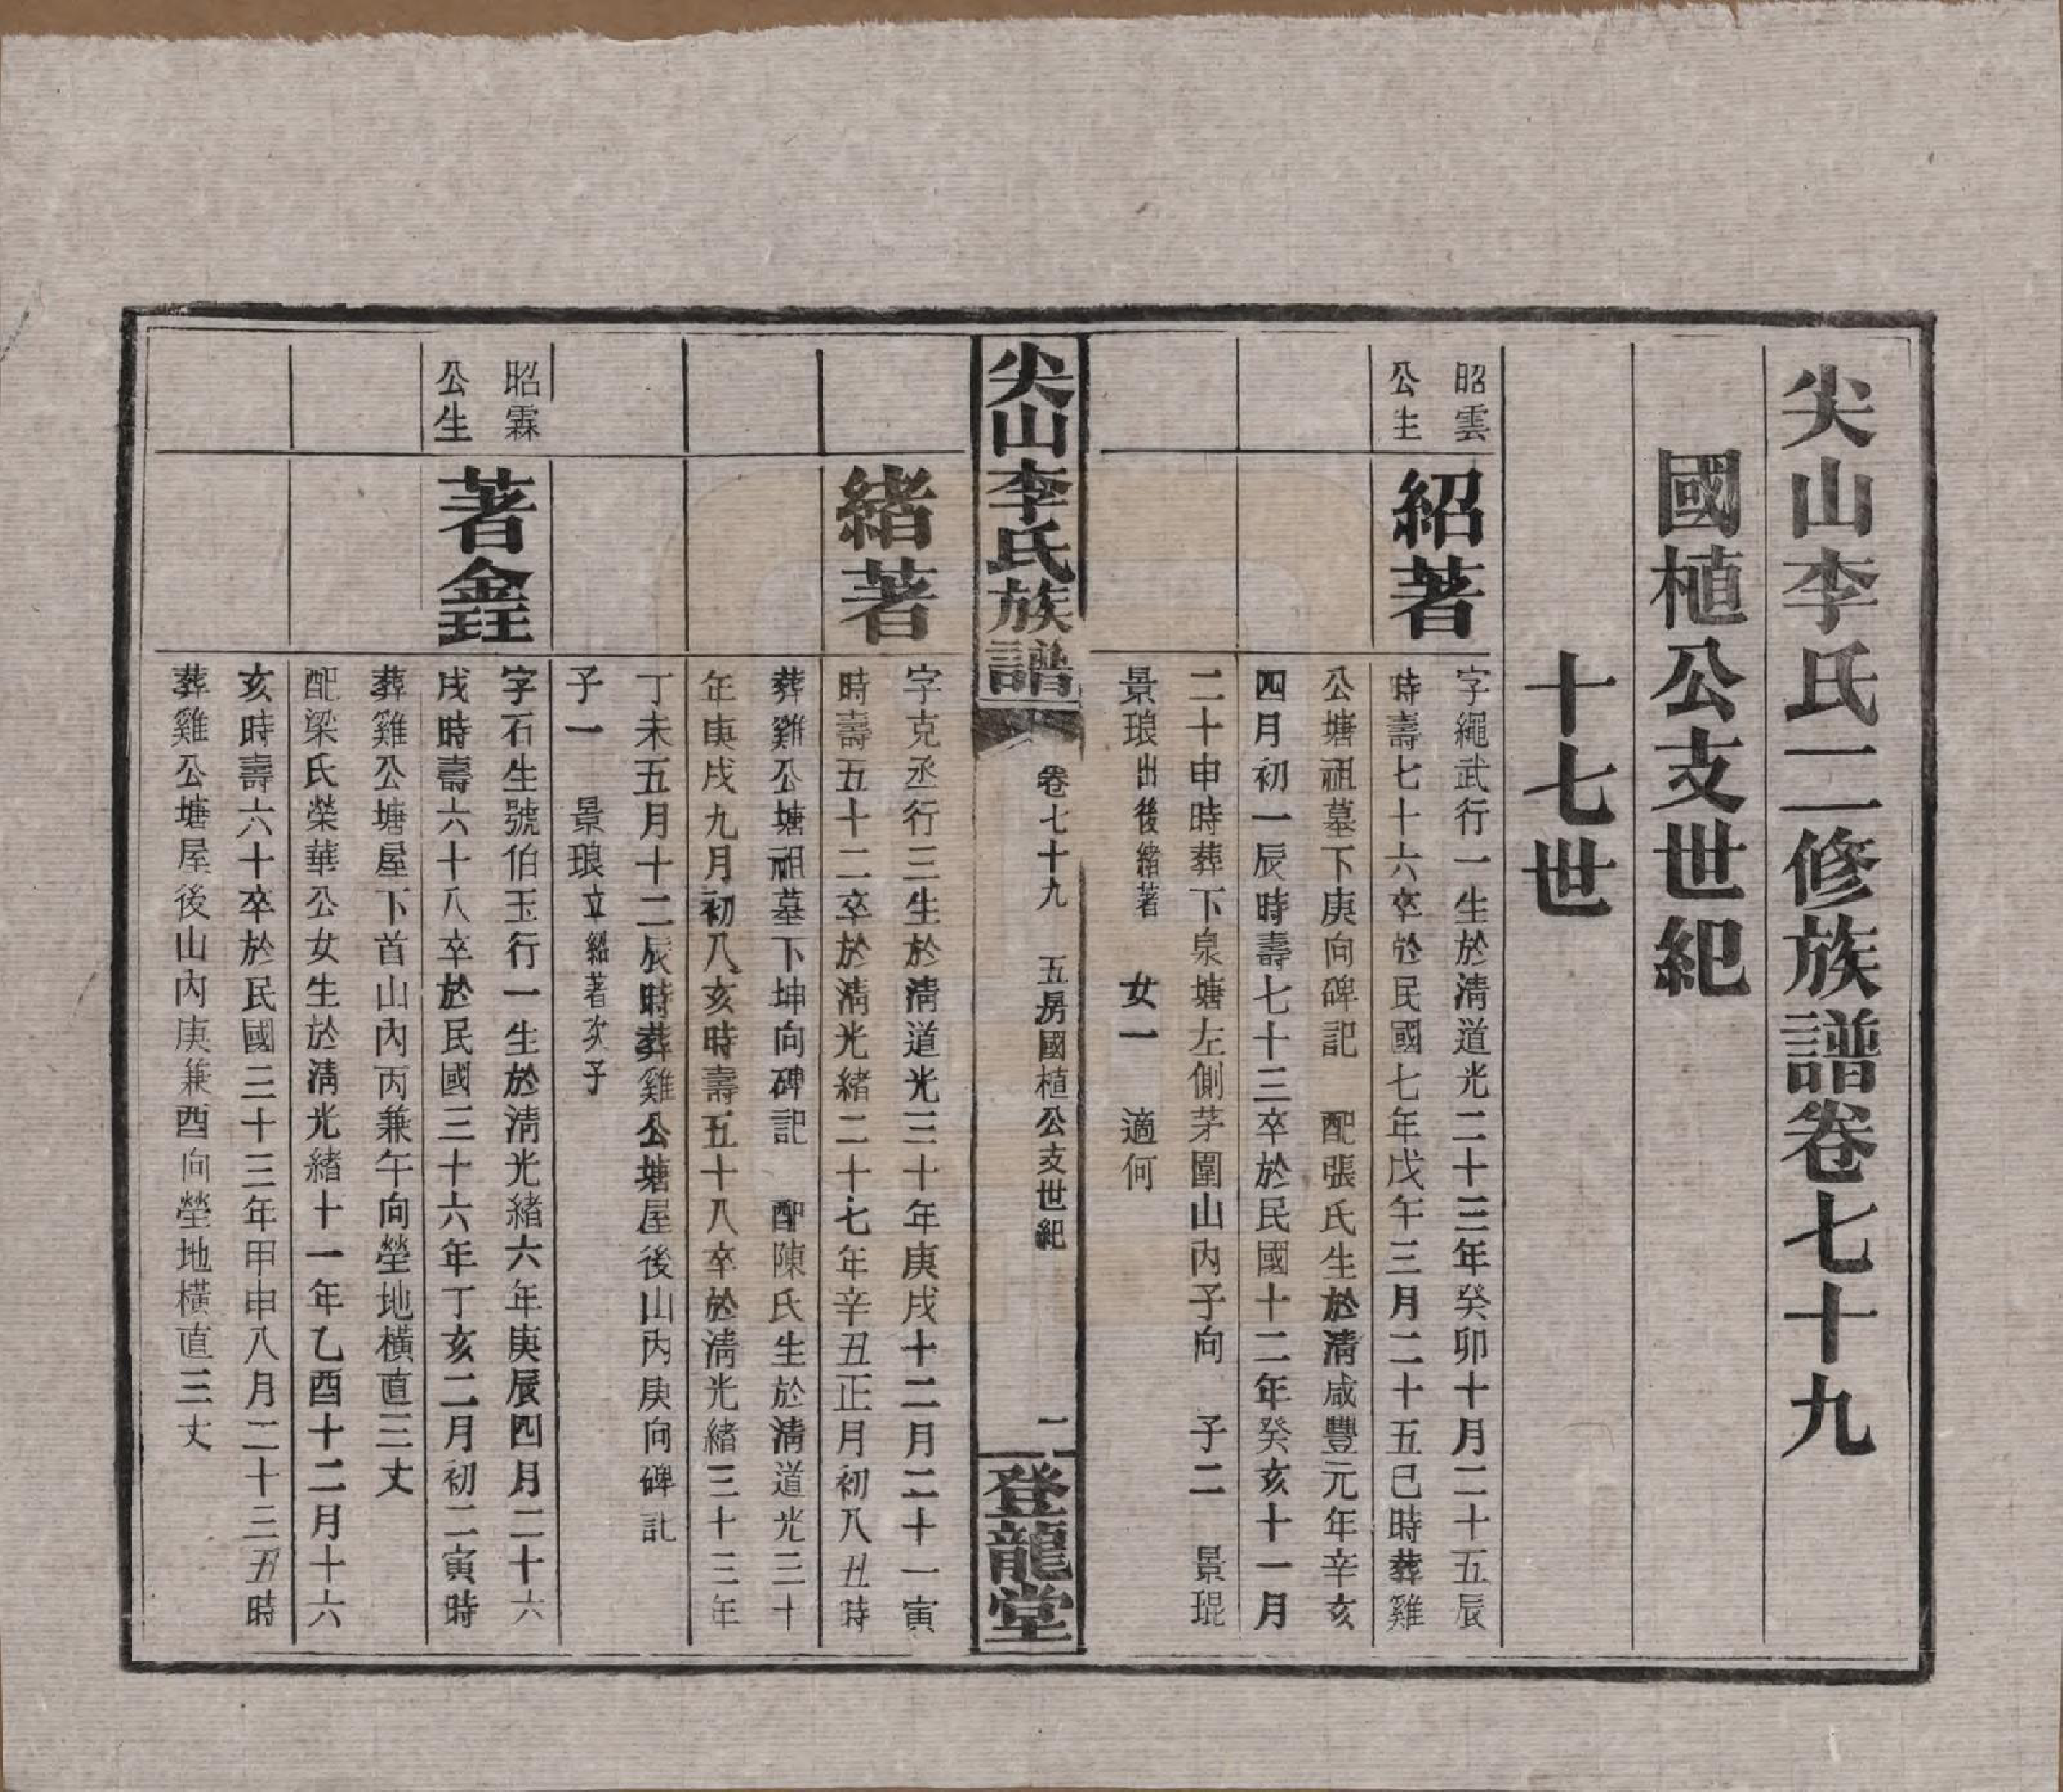 尖山李氏二修族譜卷七十九
國植公支世紀
十七世
昭雲
公生
紹著
字繩武行一生於清道光二十三年癸卯十月二十五辰
時壽七十六卒於民國七年戊午三月二十五巳時葬雞
公塘祖墓下庚向碑記　配張氏生於清咸豐元年辛亥
四月初一辰時壽七十三卒於民國十二年癸亥十一月
二十申時葬下泉塘左側茅圍山內子向　子二　景琨
景琅出後緒著　女一　適何
尖山李氏族譜
卷七十九　五房國植公支世紀
一
登龍堂
緒著
字克丞行三生於清道光三十年庚戌十二月二十一寅
時壽五十二卒於清光緒二十七年辛丑正月初八丑時
葬雞公塘祖墓下坤向碑記　配陳氏生於清道光三十
年庚戌九月初八亥時壽五十八卒於清光緒三十三年
丁未五月十二辰時葬雞公塘屋後山內庚向碑記
子一　景琅立紹著次子
昭霖
公生
著鑫玨
字石生號伯玉行一生於清光緒六年庚辰四月二十六
戌時壽六十八卒於民國三十六年丁亥二月初二寅時
葬雞公塘屋下首山內丙兼午向塋地橫直三丈
配梁氏榮華公女生於清光緒十一年乙酉十二月十六
亥時壽六十卒於民國三十三年甲申八月二十三丑時
葬雞公塘屋後山內庚兼酉向塋地橫直三丈